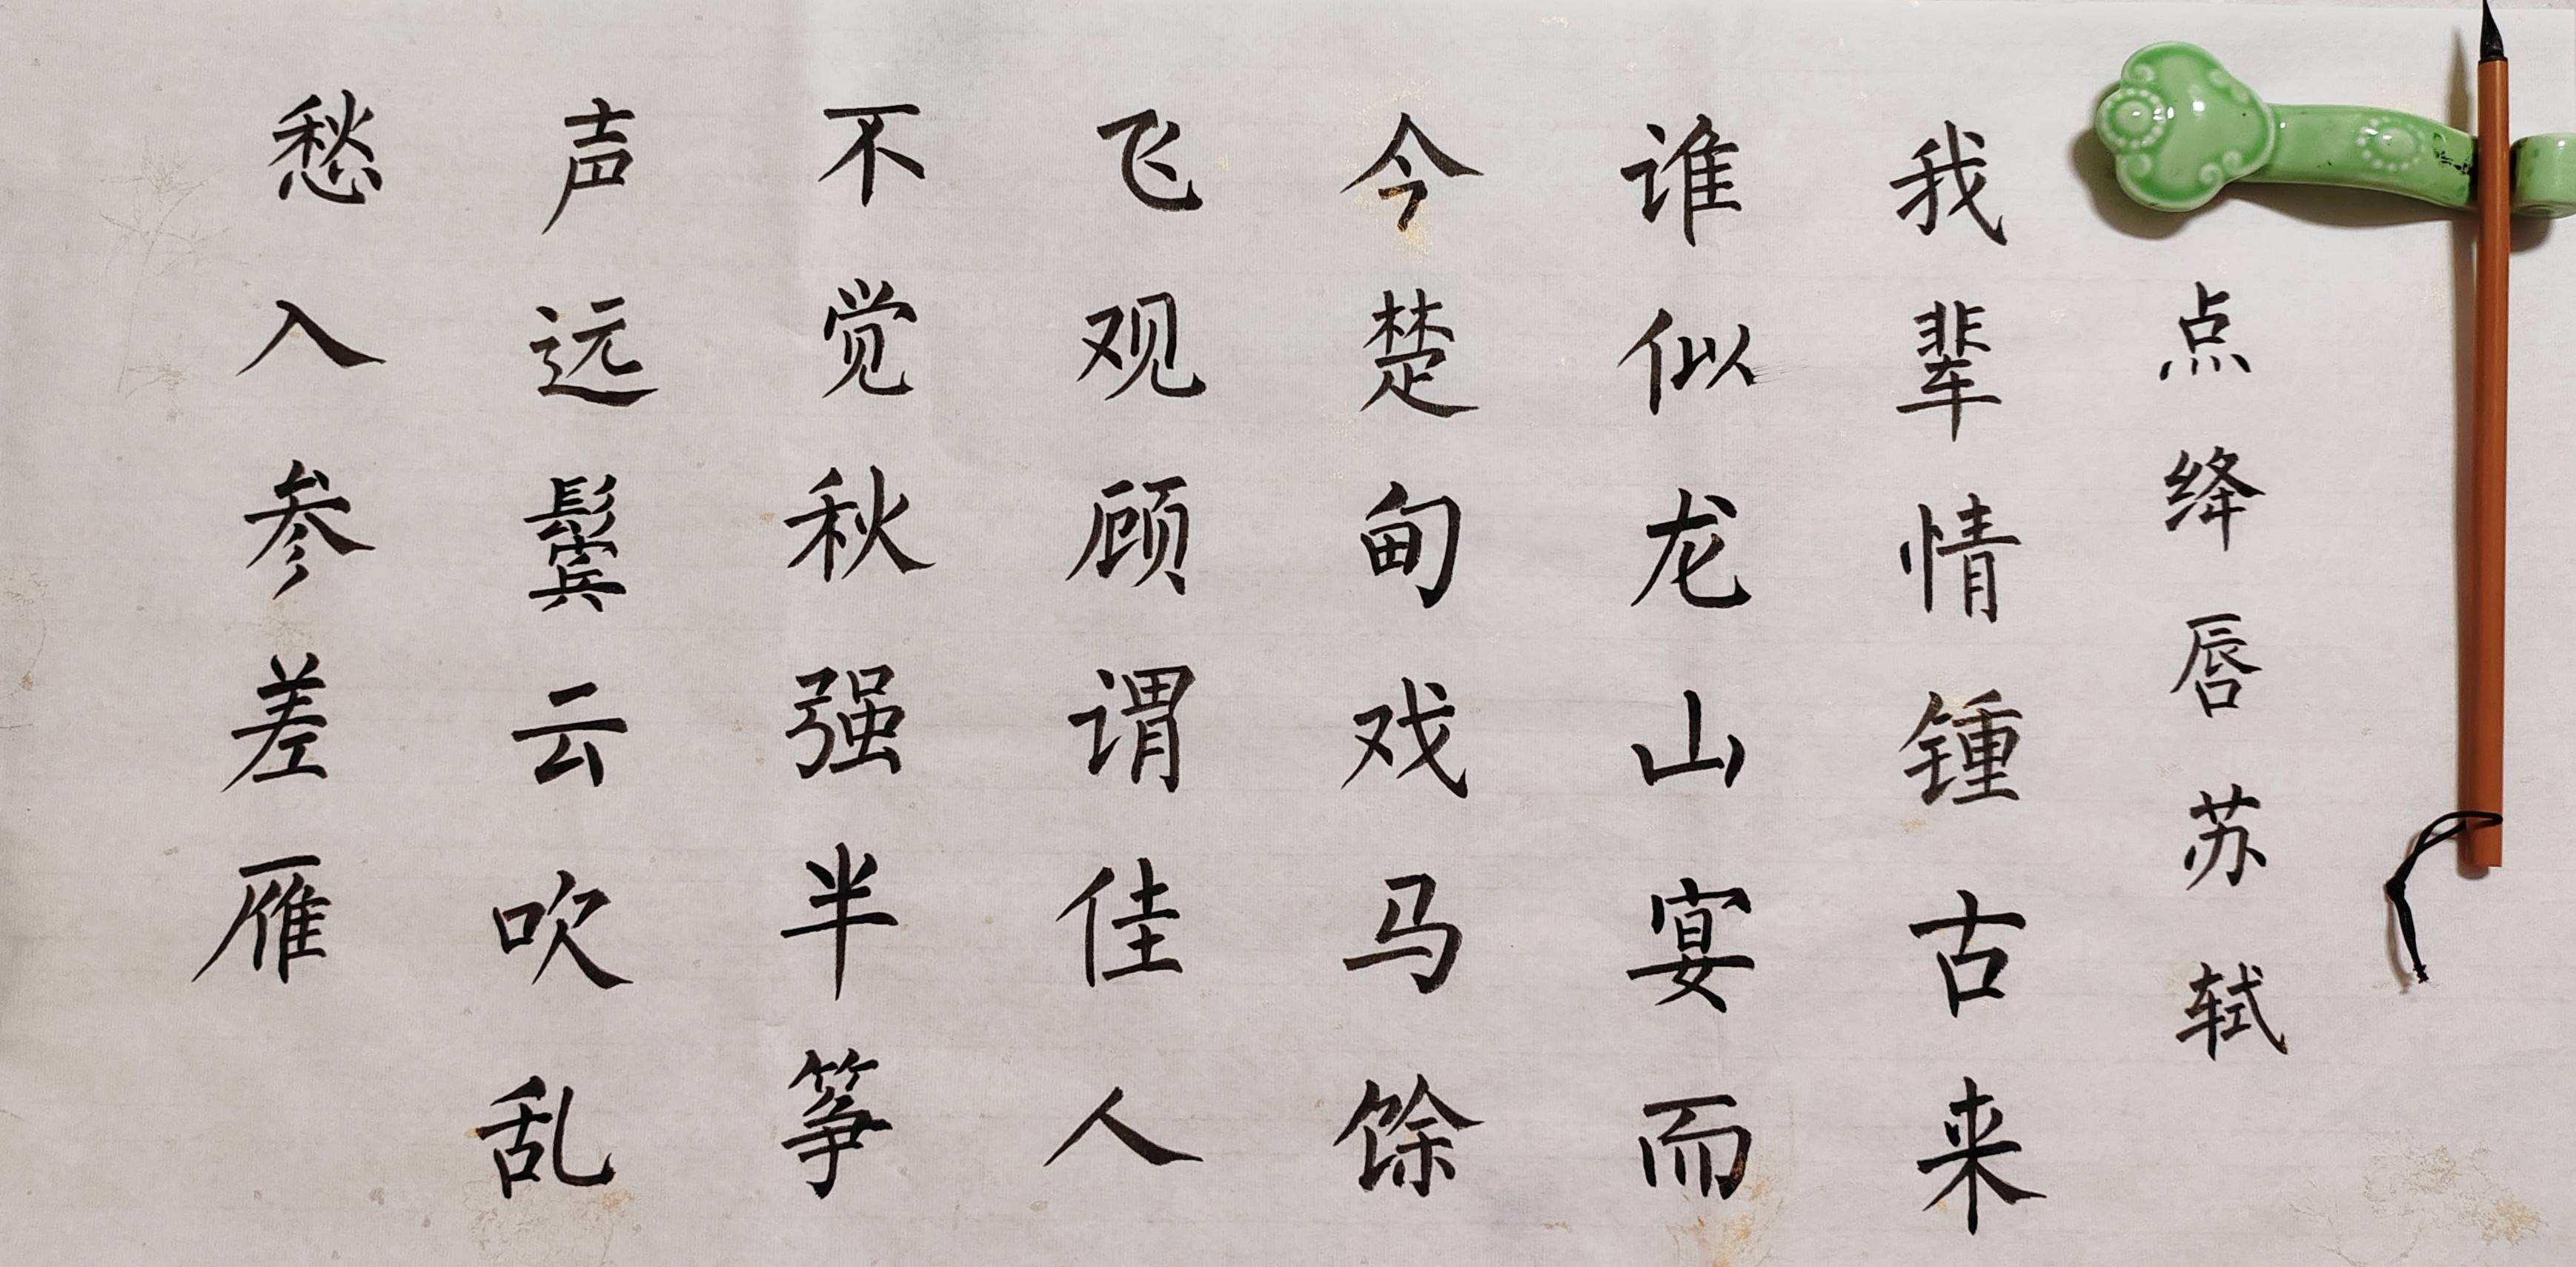 点绛唇苏轼
我辈情锺古来
谁似龙山宴而
今楚甸戏马馀
飞观顾谓佳人
不觉秋强半筝
声远鬓云吹乱
愁入参差雁